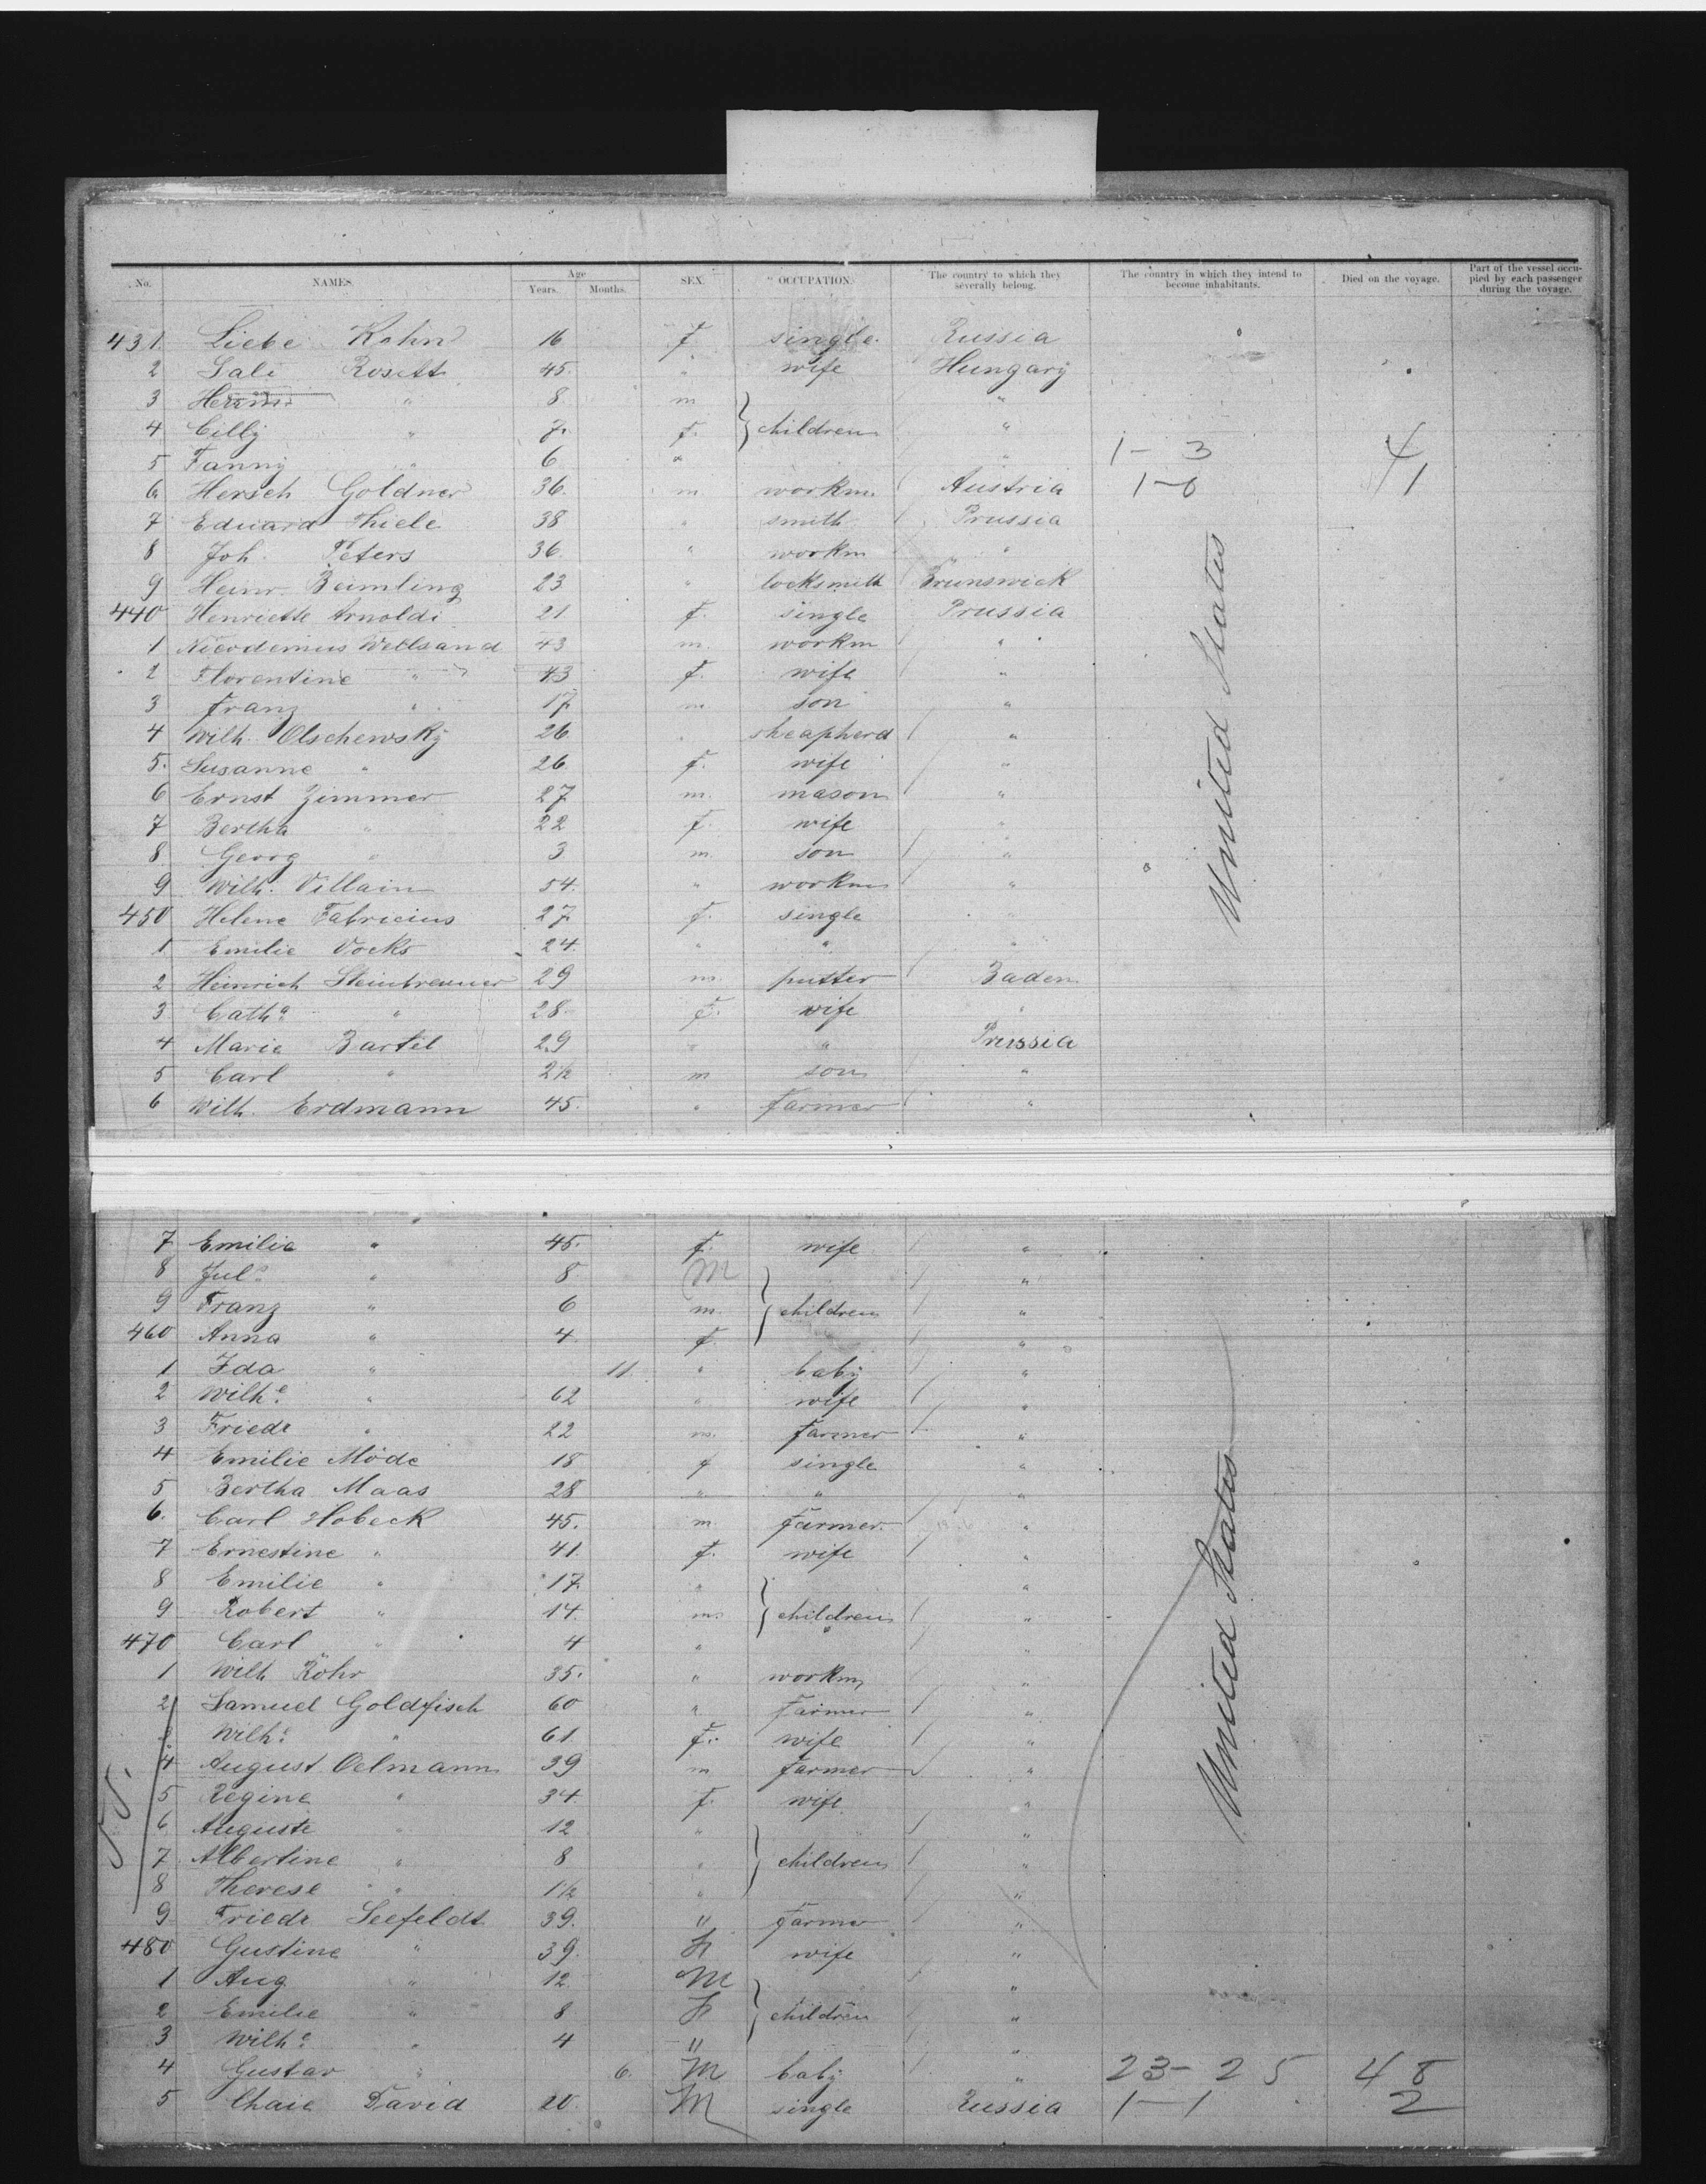 No. NAMES. Age Years. Months. SEX. OCCUPATION. The country to which they severally belong. The country in which they intend to become inhabitants. Died on the voyage. Part of the vessel occupied by each passenger during the voyage.
431 Liebe Kohn 16 f single Russia
2 Sali Rosett 45. " wife Hungary
3 Herm. " 8 m "
4 Cilly " 7. f. } children "
5 Fanny " 6 " " 1- 3 4
6 Hersch Goldner 36. m workm. Austria 1-0 1
7 Eduard Thiele 38 " smith Prussia
8 Joh. Peters 36. " workm "
9 Heinr. Beimling 23 " locksmith Brunswick
440 Henriette Arnoldi 21 f. single Prussia
1 Nicodemus Wellsand 43 m. workm "
2 Florentine " 43 f. wife "
3 Franz " 17 m son "
4 Wilh. Olschewsky 26 " sheapherd "
5. Susanne " 26 f. wife "
6 Ernst Zimmer 27 m. mason "
7 Bertha " 22 f. wife "
8 Georg " 3 m. son "
9 Wilh. Villain 54. " workm "
450 Helene Fabricius 27 f. single "
1 Emilie Vocks 24. " " "
2 Heinrich Steinbrenner 29 m. putter Baden
3 Catha " 28 f. wife "
4 Marie Bartel 29 " " Prussia
5 Carl " 2½ m son "
6 Wilh. Erdmann 45. " farmer "
United States
7 Emilie " 45. f. wife "
8 Juls " 8 M "
9 Franz " 6 m. } children "
460 Anna " 4 f. "
1 Ida " 11. " baby "
2 Wilhe " 62 " wife "
3 Friedr " 22 m. farmer "
4 Emilie Möde 18 f single "
5 Bertha Maas 28 " " "
6. Carl Hobeck 45. m. farmer. "
7 Ernestine " 41. f. wife "
8 Emilie " 17 " "
9 Robert " 14. m. } children "
470 Carl " 4 " "
1 Wilh Röhr 35. " workm "
2 Samuel Goldfisch 60 " farmer "
3 Wilhe " 61. f. wife "
4 August Oelmann 39 m farmer "
5 Regine " 34. f. wife "
6 Auguste " 12 " "
7 Albertine " 8 " } children "
8 Therese " 1½ " "
9 Friedr Seefeldt 39. " farmer "
480 Gustine " 39. F wife "
1 Aug " 12. M "
2 Emilie " 8 F } children "
3 Wilhe " 4 " "
4 Gustav " 6. M baby " 23- 25 48
5 Chaie David 20. M single Russia 1-1 2
United States